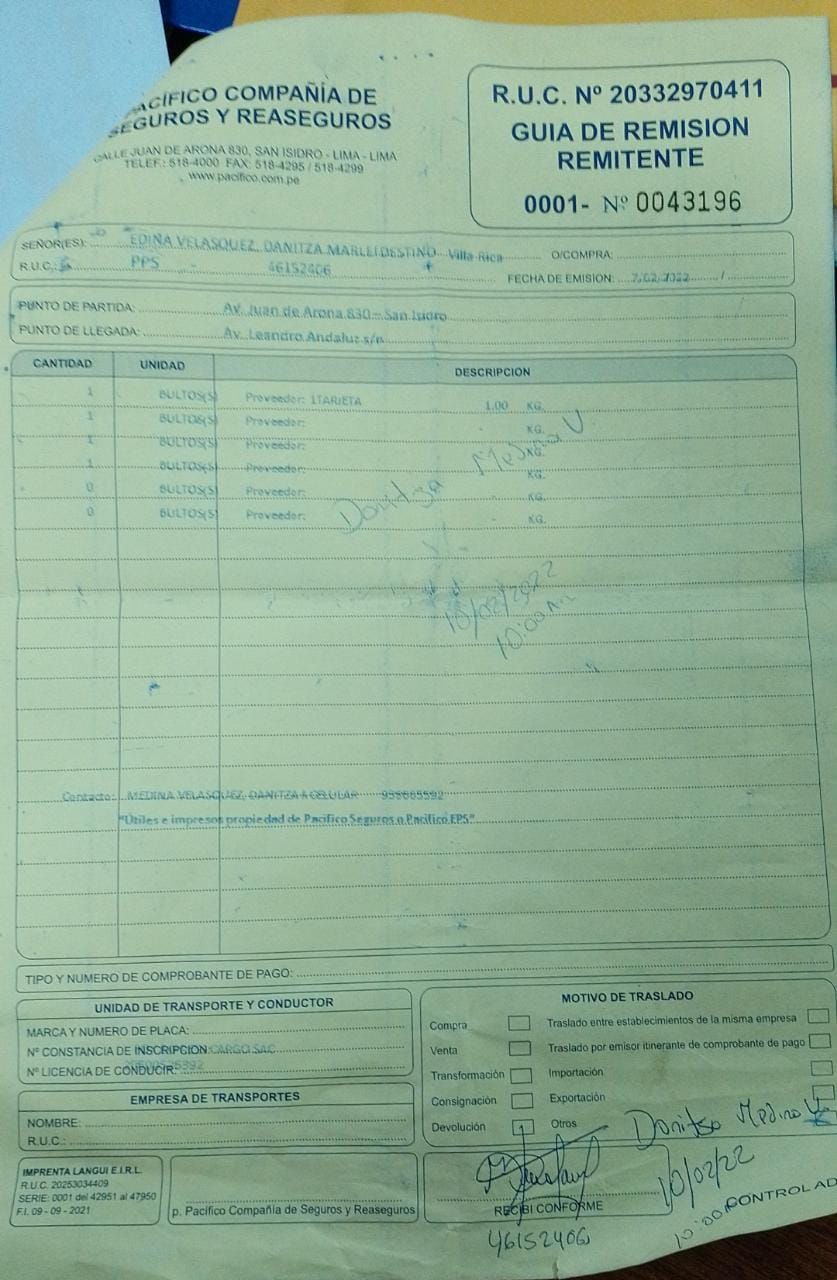 PACÍFICO COMPAÑÍA DE
SEGUROS Y REASEGUROS
CALLE JUAN DE ARONA 830, SAN ISIDRO - LIMA - LIMA
TELEF.: 518-4000 FAX: 518-4295 / 518-4299
www.pacifico.com.pe
R.U.C. Nº 20332970411
GUIA DE REMISION
REMITENTE
0001- Nº 0043196
SEÑOR(ES): EDINA VELASQUEZ, DANITZA MARLEI DESTINO Villa Rica O/COMPRA:
R.U.C.: PPS 46152406 FECHA DE EMISION: 7/02/2022
PUNTO DE PARTIDA: Av. Juan de Arona 830 - San Isidro
PUNTO DE LLEGADA: Av. Leandro Andaluz s/n
CANTIDAD UNIDAD DESCRIPCION
1 BULTOS(S) Proveedor: 1TARJETA 1.00 KG.
1 BULTOS(S) Proveedor: - KG.
1 BULTOS(S) Proveedor: KG.
1 BULTOS(S) Proveedor: KG.
0 BULTOS(S) Proveedor: - KG.
0 BULTOS(S) Proveedor: - KG.
Danitza Medina V
10/02/2022
10:00 Am
Contacto: MEDINA VELASQUEZ, DANITZA CELULAR
"Útiles e impresos propiedad de Pacífico Seguros o Pacífico EPS"
TIPO Y NUMERO DE COMPROBANTE DE PAGO:
UNIDAD DE TRANSPORTE Y CONDUCTOR
MARCA Y NUMERO DE PLACA:
Nº CONSTANCIA DE INSCRIPCION: CARGO SAC
Nº LICENCIA DE CONDUCIR:
EMPRESA DE TRANSPORTES
NOMBRE:
R.U.C.:
MOTIVO DE TRASLADO
Compra Traslado entre establecimientos de la misma empresa
Venta Traslado por emisor itinerante de comprobante de pago
Transformación Importación
Consignación Exportación
Devolución Otros
Danitza Medina V
10/02/22
10:00
CONTROLAD
IMPRENTA LANGUI E.I.R.L.
R.U.C. 20253034409
SERIE: 0001 del 42951 al 47950
F.I. 09 - 09 - 2021
p. Pacífico Compañía de Seguros y Reaseguros
RECIBI CONFORME
46152406